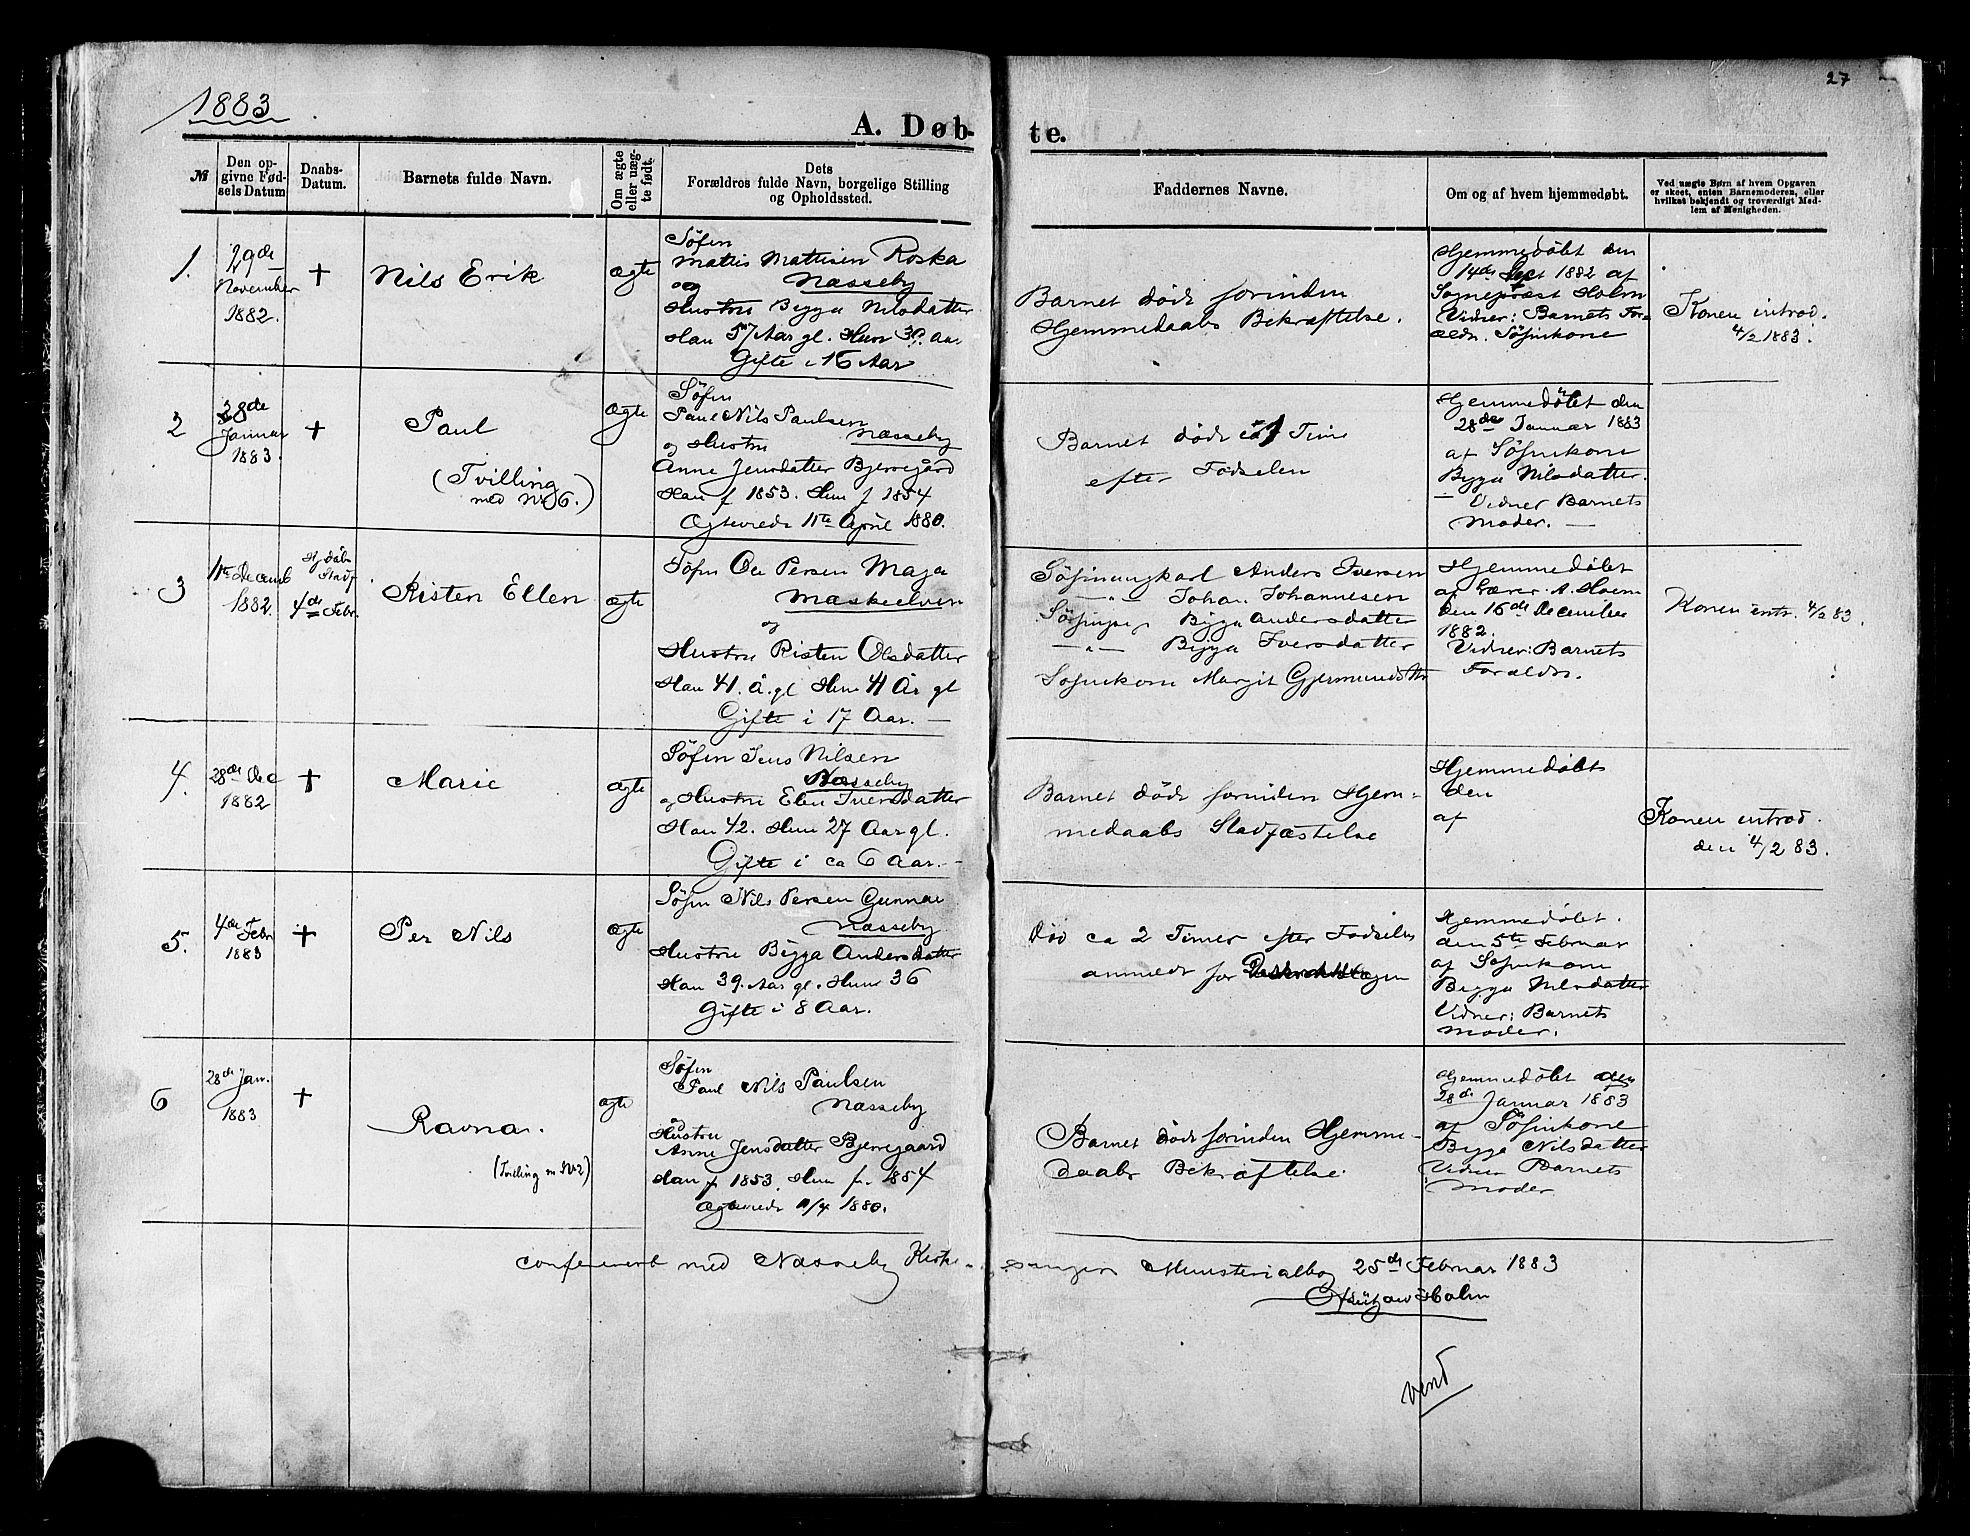 27
1883
A. Døb-
te.
№
Den op-
givne Fød-
sels Datum
Daabs-
Datum.
Barnets fulde Navn.
Om ægte
eller uæg-
te født.
Dets
Forældres fulde Navn, borgelige Stilling
og Opholdssted.
Faddernes Navne.
Om og af hvem hjemmedøbt.
Ved uægte Børn af hvem Opgaven
er skeet, enten Barnemoderen, eller
hvilket bekjendt og troværdigt Med-
lem af Menigheden.
1.
29de
November
1882.
+
Nils Erik
ægte
Søfin
Mattis Mattisen Roska
og Næsseby
Hustru Bigga Nilsdatter
Han 57 Aar gl. Hun 39 Aar
Gifte i 16 Aar
Barnet døde forinden
Hjemmedaabs Bekræftelse.
Hjemmedøbt den
14de 1882 af
Sognepræst Holm
Vidner: Barnets For-
ældr. Søfinkone
Konen introd.
4/2 1883.
2
28de
Januar
1883.
+
Paul
(Tvilling
med No 6.)
ægte
Søfin
Paul Nils Paulsen
og Hustru Næsseby
Anne Jensdatter Bjerregård
Han f 1853. Hun f 1854
Ægteviede 11te April 1880.
Barnet døde ca 1 Time
efter Fødselen
Hjemmedøbt den
28de Januar 1883
af Søfinkone
Bigga Nilsdatter.
— Vidner Barnets
Moder. —
3
11te Decemb
1882.
Hj.døb
Stadf
4de Febr.
Risten Ellen
ægte
Søfin Ole Persen Maja
Maskeelven
og
Hustru Risten Olsdatter
Han 41. Å. gl Hun 41 År gl
Gifte i 17 Aar. —
Søfinungkarl Anders Iversen
— " — Johan Johannesen
Søfinpige Bigga Andersdatter
— " — Bigga Iversdatter
Søfinkone Margit Gjermundsdtr
Hjemmedøbt
af Lærer A. Holm
den 16de December
1882.
Vidner: Barnets
Forældr.
Konen intr. 4/2 83.
4.
28de Dec
1882
+
Marie
ægte
Søfin Jens Nilsen
Næsseby
og Hustru Elen Iversdatter
Han 42. Hun 27 Aar gl.
Gifte i ca 6 Aar. —
Barnet døde forinden Hjem-
medaabs Stadfæstelse
Hjemmedøbt
den
af
Konen introd.
den 4/2 83.
5.
4de Febr
1883
+
Per Nils
ægte
Søfin Nils Persen Gunnar
Næsseby
Hustru Bigga Andersdatter
Han 39. Aar gl. Hun 36
Gifte i 8 Aar.
Død ca 2 Timer efter Fødselen
anmeldt for
Hjemmedøbt.
den 5te Februar
af Søfinkone
Bigga Nilsdatter
Vidner: Barnets
Moder.
6
28de Jan.
1883
+
Ravna.
(Tvilling m No 2)
ægte
Søfin
Paul Nils Paulsen
Næsseby
og
Hustru
Anne Jensdatter Bjerregaard
Han f 1853. Hun f. 1854
Ægteviede 11/4 1880.
Barnet døde forinden Hjemme-
daabs Bekræftelse.
Hjemmedøbt den
28de Januar 1883
af Søfinkone
Bigga Nilsdatter
Vidner Barnets
Moder
confereret med Næsseby Kirke- sangers Ministerialbog 25de Februar 1883
Holm
vend